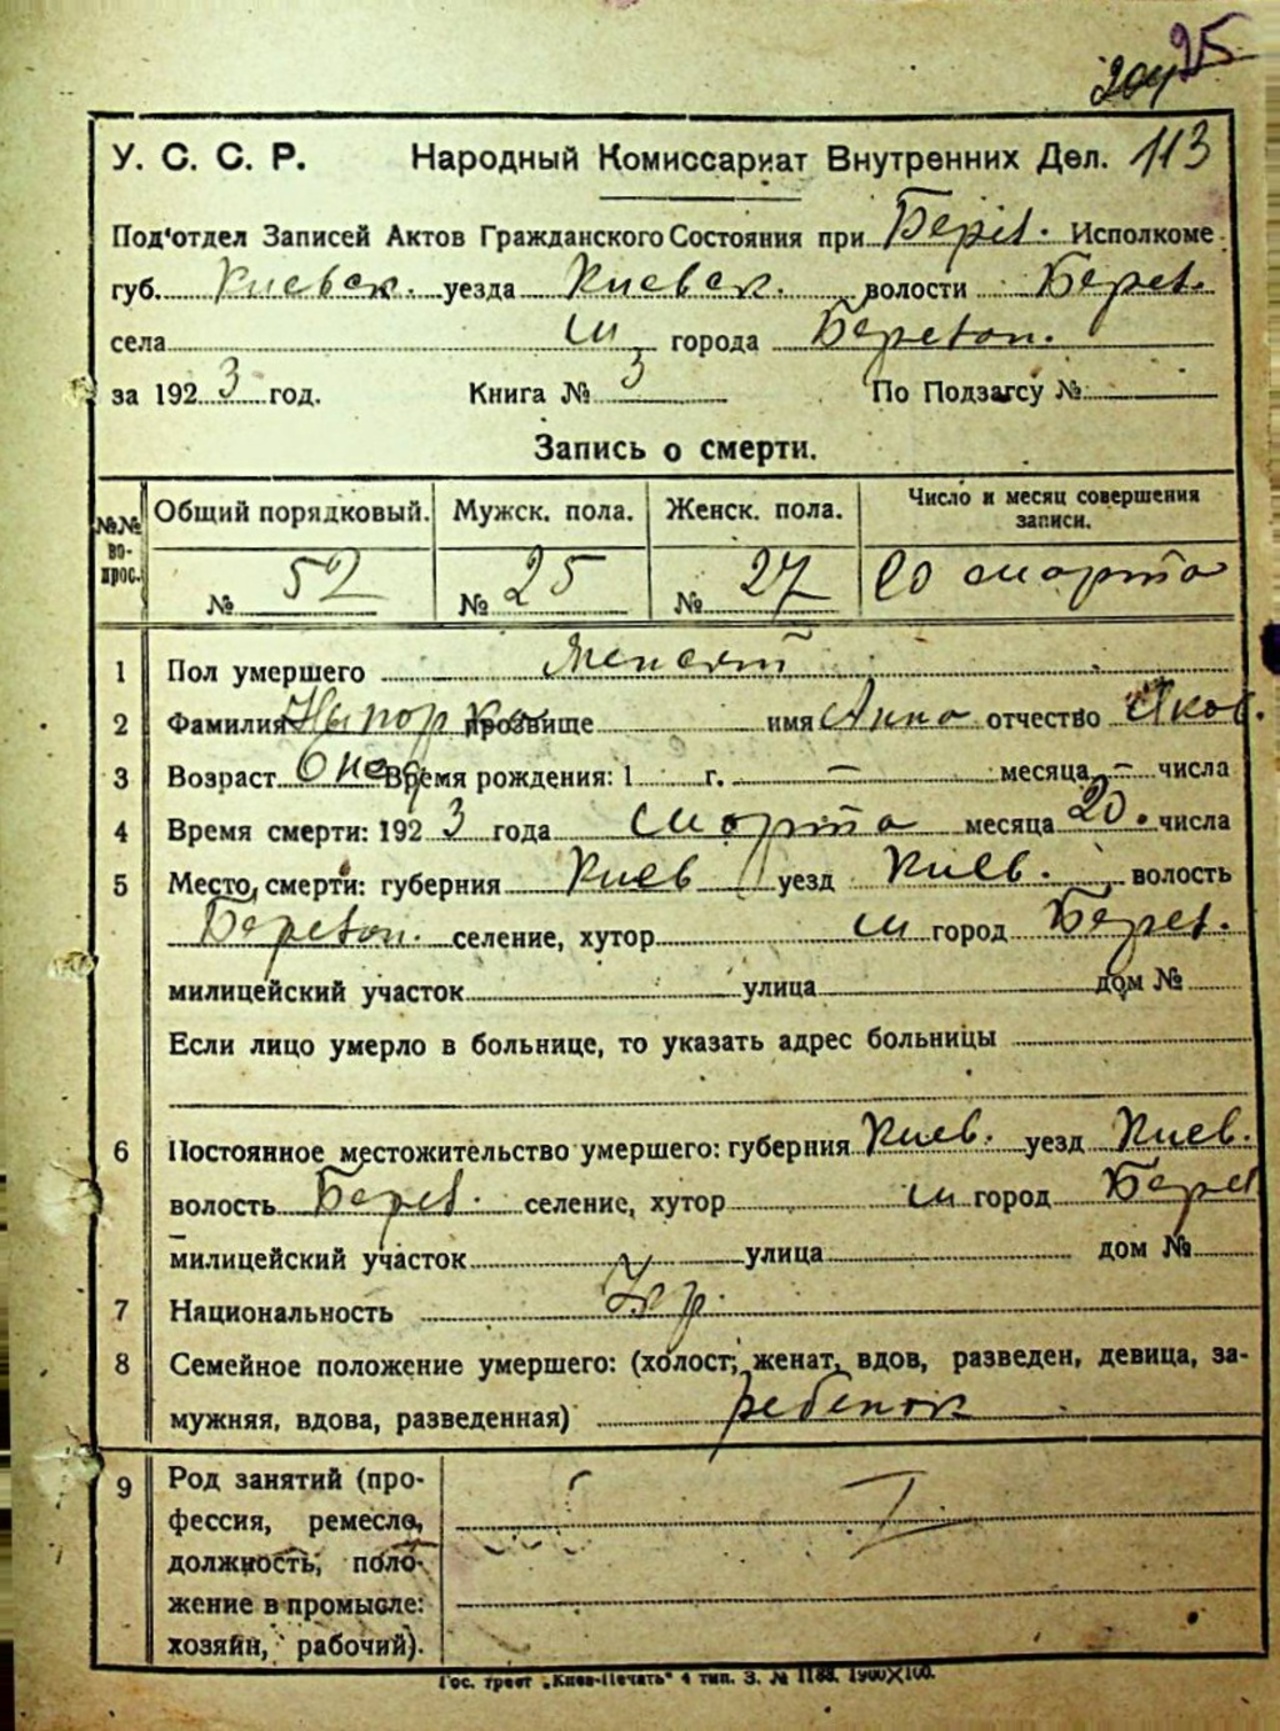 204 25
У. С. С. Р. Народный Комиссариат Внутренних Дел. 113
Под'отдел Записей Актов Гражданского Состояния при Берез. Исполкоме
губ. Киевск. уезда Киевск. волости Берез.
села м. города Березан.
за 1923 год. Книга № 3 По Подзагсу №
Запись о смерти.
№№ во-прос. Общий порядковый. Мужск. пола. Женск. пола. Число и месяц совершения записи.
№ 52 № 25 № 27 20 марта
1 Пол умершего Женский
2 Фамилия прозвище имя Анна отчество Яков.
3 Возраст 6 нед Время рождения: 1 г. — месяца — числа
4 Время смерти: 1923 года марта месяца 20. числа
5 Место смерти: губерния Киев уезд Киев. волость
Березан. селение, хутор м город Берез.
милицейский участок улица дом №
Если лицо умерло в больнице, то указать адрес больницы
6 Постоянное местожительство умершего: губерния Киев. уезд Киев.
волость Берез. селение, хутор м город Берез
милицейский участок улица дом №
7 Национальность Укр.
8 Семейное положение умершего: (холост, женат, вдов, разведен, девица, за-
мужняя, вдова, разведенная) ребенок
9 Род занятий (про-
фессия, ремесло,
должность, поло-
жение в промысле:
хозяйн, рабочий).
Гос. трест „Киев-Печать" 4 тип. З. № 1188. 1900Х100.